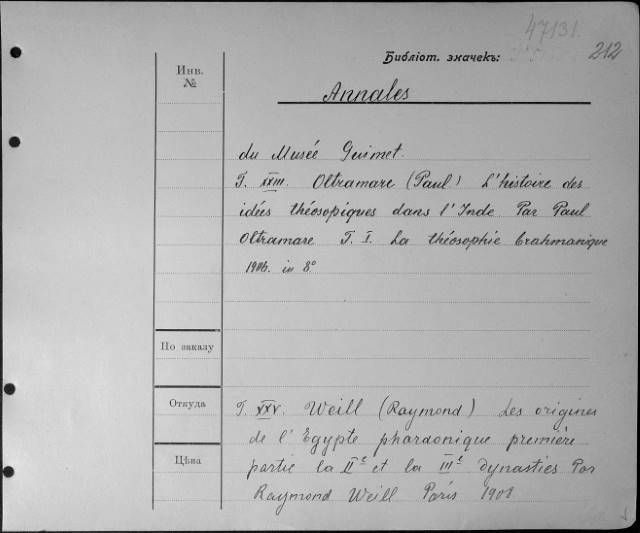 47131.
Библіот. значекъ: 212
Инв.
№
Annales
du Musée Guimet.
T. XXIII. Oltramare (Paul) L'histoire des
idées théosopiques dans l'Inde. Par Paul
Oltramare T. I. La théosophie brahmanique
1906. in 8°
По заказу
Откуда
T. XXV. Weill (Raymond) Les origines
de l'Egypte pharaonique première
Цѣна
partie la IIe et la IIIe dynasties Par
Raymond Weill Paris 1908